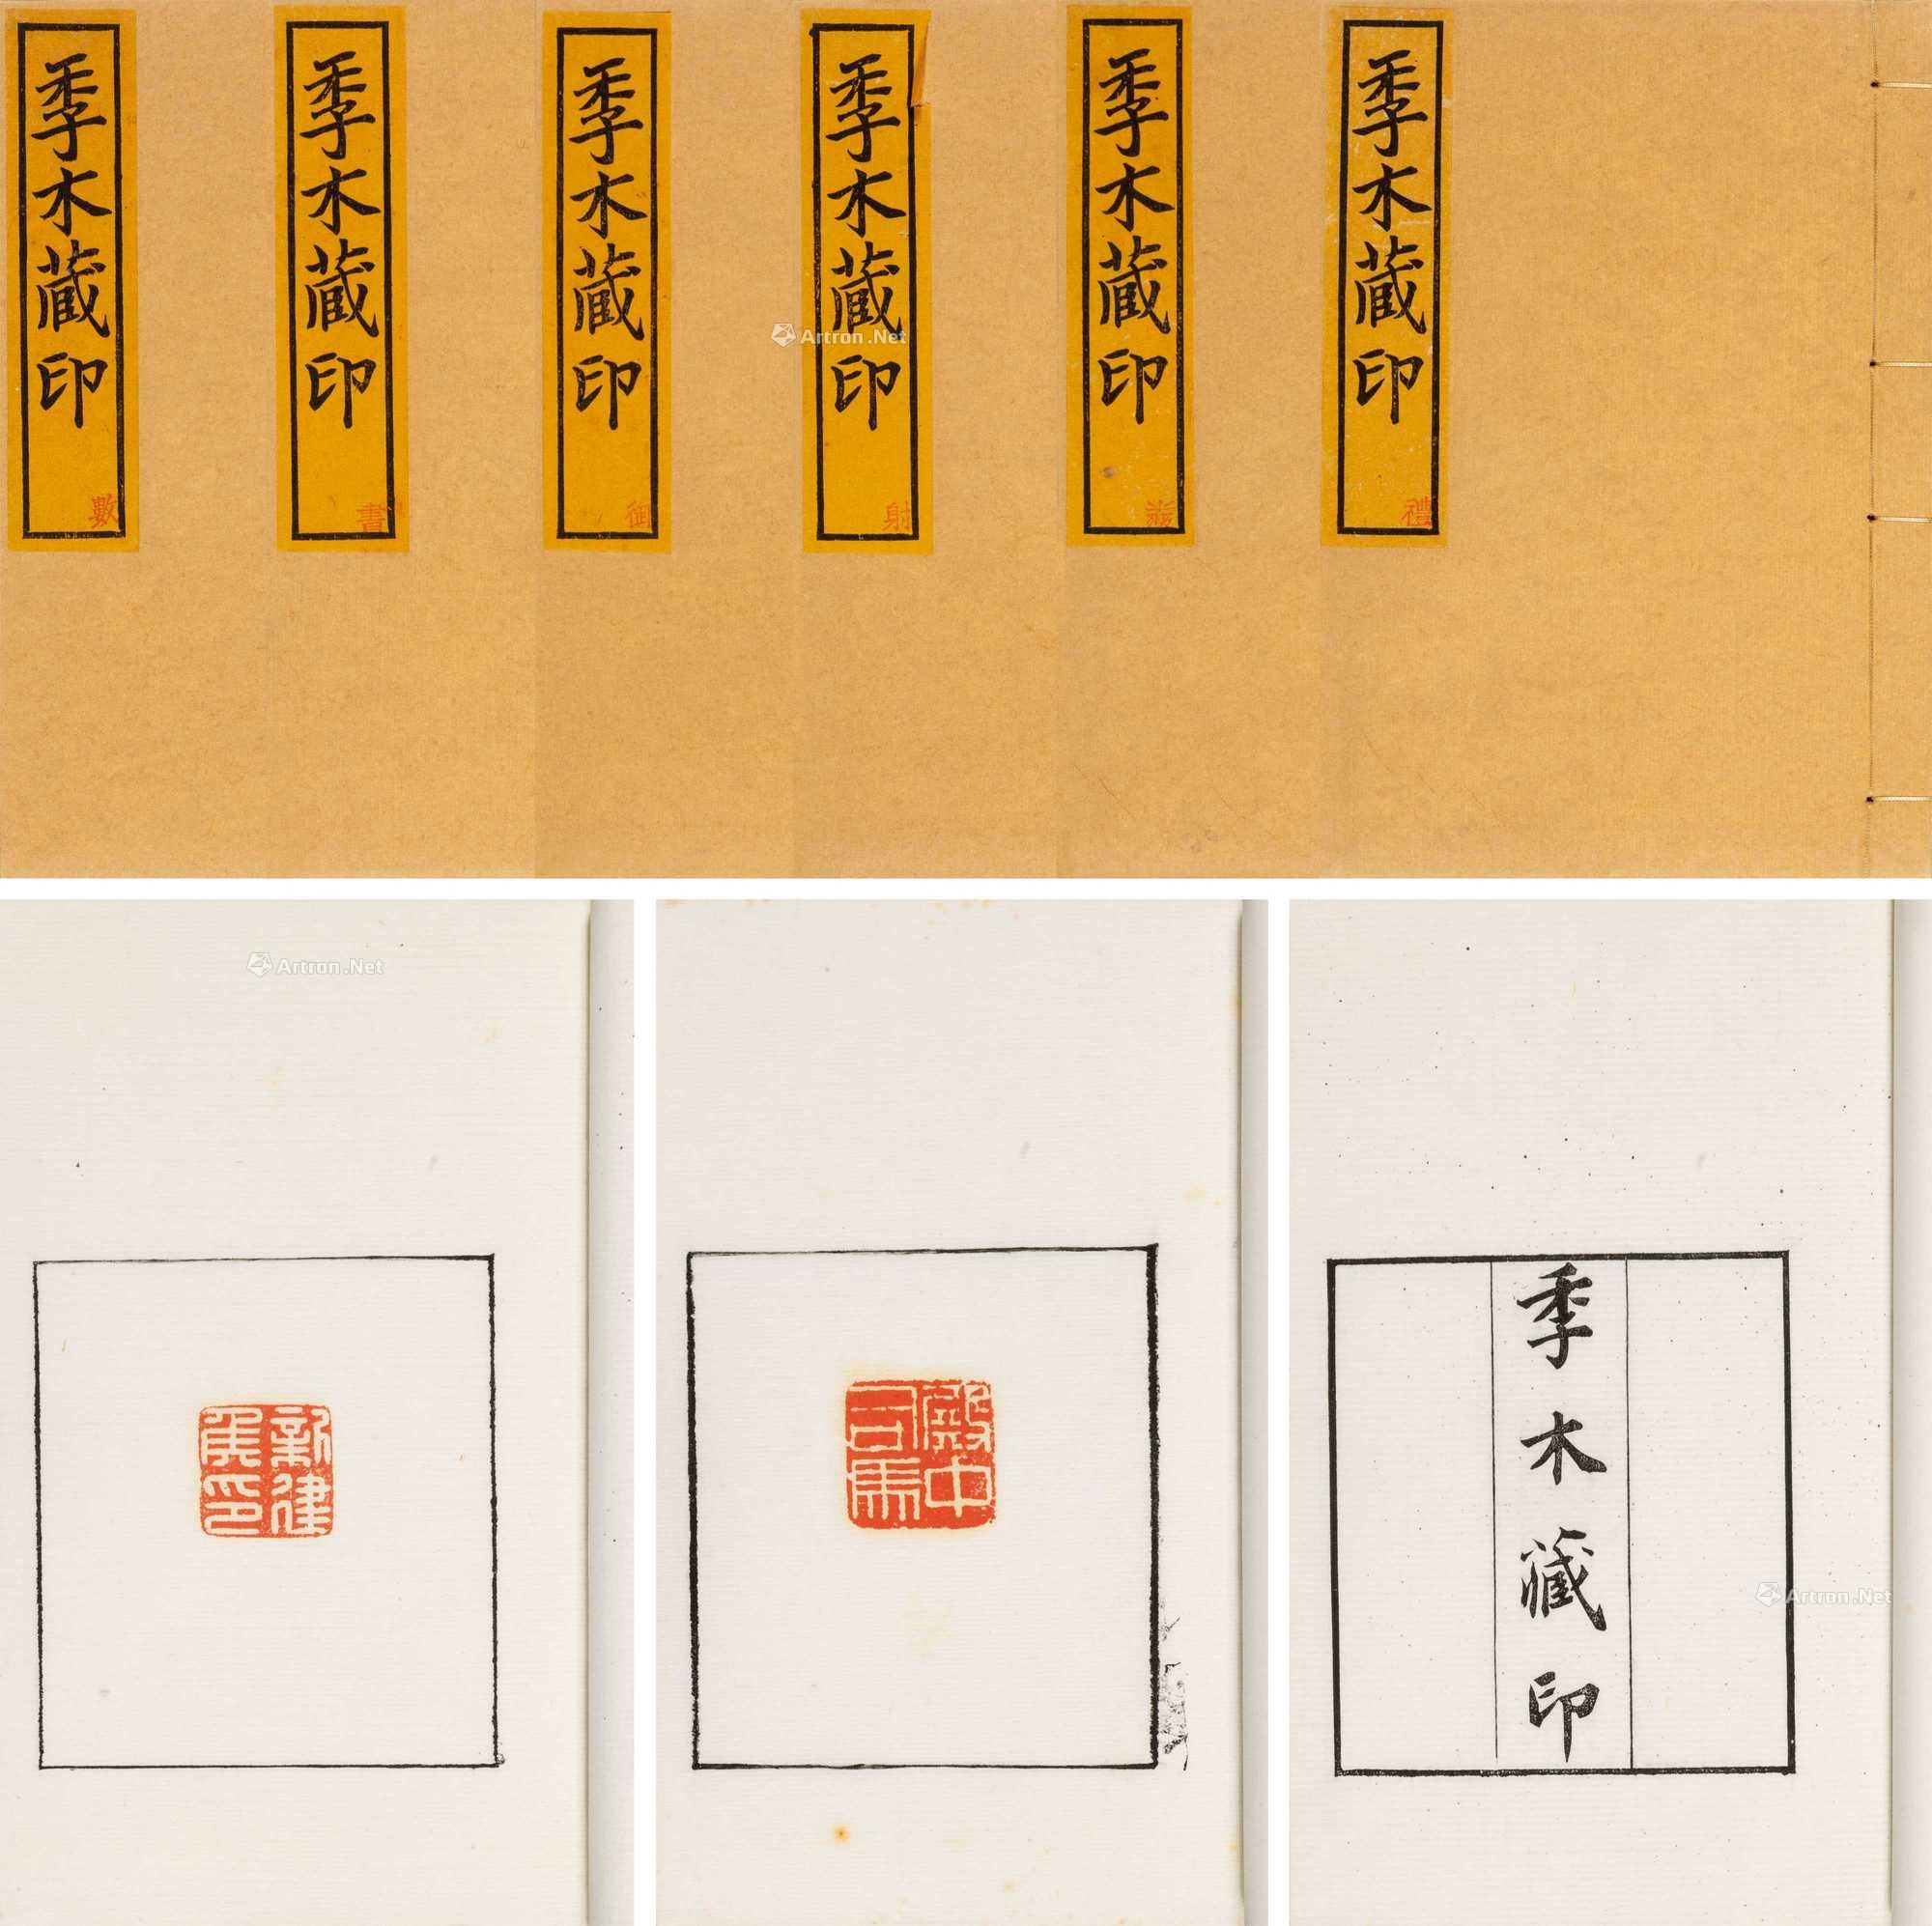 季木藏印
禮
季木藏印
季木藏印
射
季木藏印
御
季木藏印
書
季木藏印
數
Artron.Net
季木藏印
殿中
司馬
新律
侯印
Artron.Net
Artron.Net